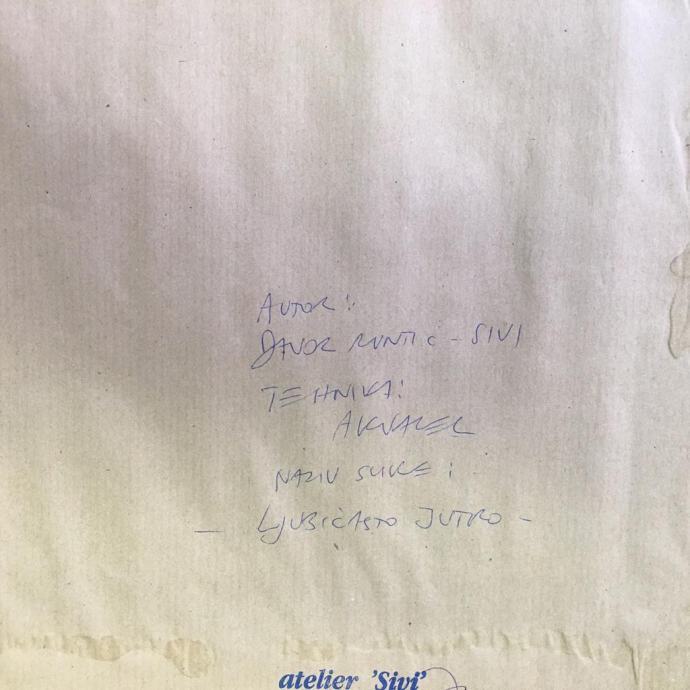 AUTOR:
DAVOR RUNTIĆ - SIVI
TEHNIKA:
AKVAREL
NAZIV SLIKE:
- LJUBIČASTO JUTRO -
atelier 'Sivi'